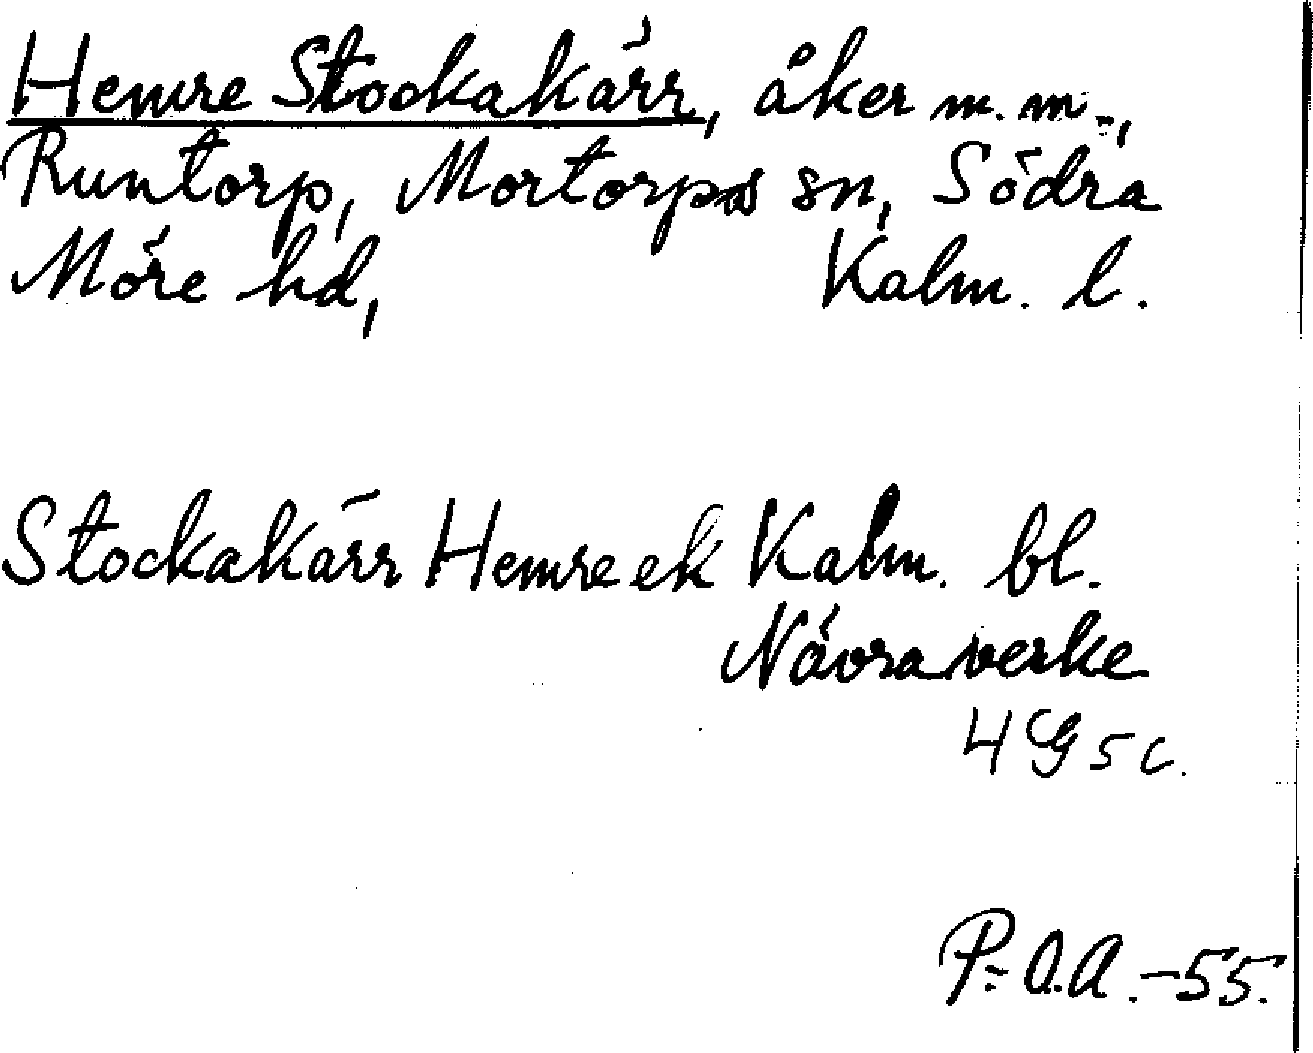 Hemre Stockakärr, åker m.m.,
Runtorp, Mortorps sn, Södra
Möre hd, Kalm. l.
Stockakärr Hemre ek Kalm. bl.
Návraverke
4 G 5 c.
P.O.A.-55.